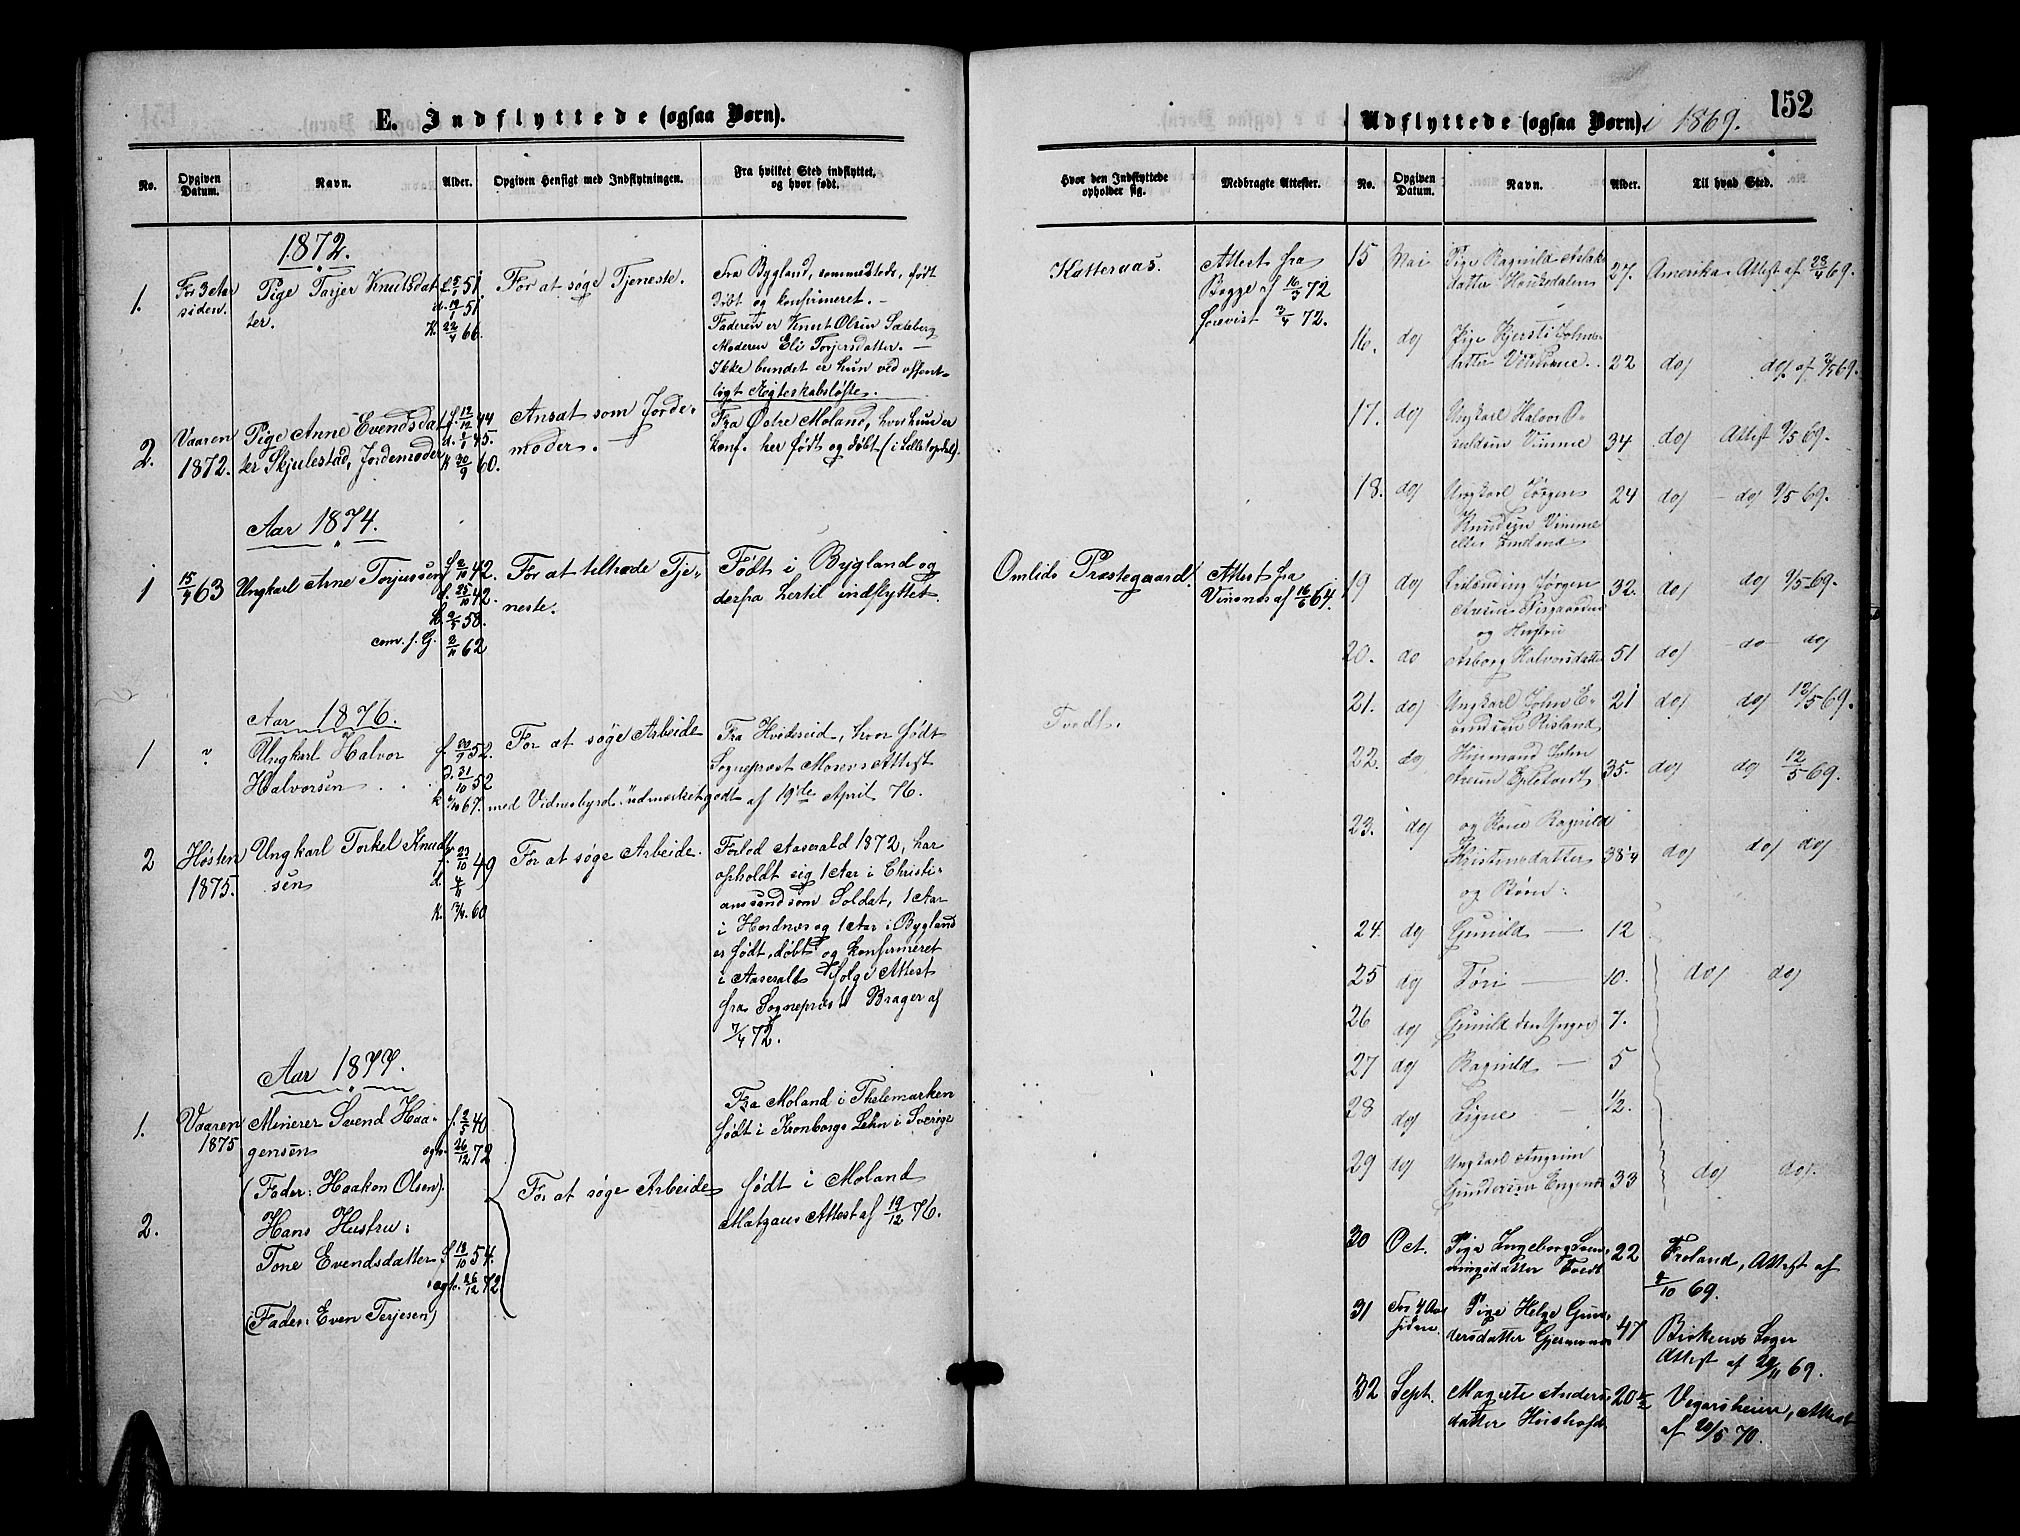 E. Indflyttede (ogsaa Børn).
No.
Opgiven Datum.
Navn.
Alder.
Opgiven Hensigt med Indflytningen.
Fra hvilket Sted indflyttet, og hvor født.
1872.
1.
For 3 Aar
siden.
Pige Torjer Knutsdat
ter.
51.
d. 19/1 51.
K. 22/4 66.
For at søge Tjeneste.
Fra Bygland, sammesteds, født
døbt og konfirmeret. –
Faderen er Knut Olsen
Moderen Eli Torjersdatter. –
Ikke bundet er hun ved offent-
ligt Ægteskabsløfte.
2.
Vaaren
1872.
Pige Anne Evendsdat
ter Skjulestad, Jordemoder
f. 12/12 44
d. 1/1 45.
K 30/9 60.
Ansat som Jorde-
moder.
Fra Østre Moland, hvor hun er
konf. her født og døbt
Aar 1874.
1
15/4 63
Ungkarl Arne Torjussen
f. 2/10 42.
d. 25/10 42.
58.
62
For at tiltræde Tje-
neste.
Født i Bygland og
derfra hertil indflyttet.
Aar 1876.
1
"
Ungkarl Halvor
Halvorsen
52.
d. 31/10 52
67. med Vidnesbyrd "udmærket godt af 19de April 76.
For at søge Arbeide
Fra Hvideseid, hvor født
Sognepræst Moses Attest
2
Høsten
1875.
Ungkarl Torkel Knud-
sen
49
d. 4/11
K. 60
For at søge Arbeide.
Forlod Aaserald 1872, har
opholdt sig 1 Aar i Christi-
anssand som Soldat, 1 Aar
i Hordnæs og 1 Aar i Bygland
er født, døbt og konfirmeret
i Aaserald ifølge Attest
fra Sognepræst Brager af
7/4 72.
Aar 1877.
1.
Vaaren
1875
Minerer Svend Haa-
gensen
f. 2/5 40
ægt. 26/12 72
(Fader: Haakon Olsen).
2.
Hans Hustru:
Tone Evendsdatter
f 18/10 54.
ægt. 26/12 72
(Fader: Even Terjesen)
For at søge Arbeide
Fra Moland i Thelemarken
født i Kronborgs Lehn i Sverige
født i Moland
Attest af 19/12 76.
Udflyttede (ogsaa Børn). i 1869.
152
Hvor den Indflyttede opholder sig.
Medbragte Attester.
No.
Opgiven Datum.
Navn.
Alder.
Til hvad Sted.
Katteraas.
Attest fra
Bogge af 16/3 72
forevist 3/4 72.
Omlids Præstegaard.
Attest fra
af 16/6 64.
Tvedt.
15
Mai
Pige Ragnild Aslaks
datter
27.
Amerika Attest af 23/4 69.
16.
do
Pige Kjersti
datter Vimme
22
do
do af 69.
17.
do
Ungkarl Halvor
Vimme
34
do
Attest 9/5 69.
18.
do
Ungkarl Jørgen
Knudsen Vimme
eller
24
do
do 9/5 69.
19
do
Jørgen
og Hustru
32.
do
do 9/5 69.
20.
do
Asborg Halvorsdatter
51
do
do
do
21.
do
Ungkarl John E-
vendsen Risland
21
do
do
12/5 69.
22.
do
Husmand John
35.
do
do
12/5 69.
23.
do
og Kone Ragnild
Kristensdatter
og Børn:
38¼
do
do
do
24.
do
Gunild
12
25
do
Tori
10.
do
do
26
do
Gunild den Yngre
7.
27
do
Ragnild
5
28
do
Signe
½.
29
do
Ungkarl
Gundersen
33
do
do
30
Oct.
Pige Ingeborg
Tvedt
22
Froland, Attest af
/10 69.
31
For 4 Aar
siden.
Pige Helge Gun-
dersdatter
47
Birkenes Sogn
Attest af 69.
32
Sept.
Magrete Anders
datter
20½
Vegarsheien, Attest
af 70.